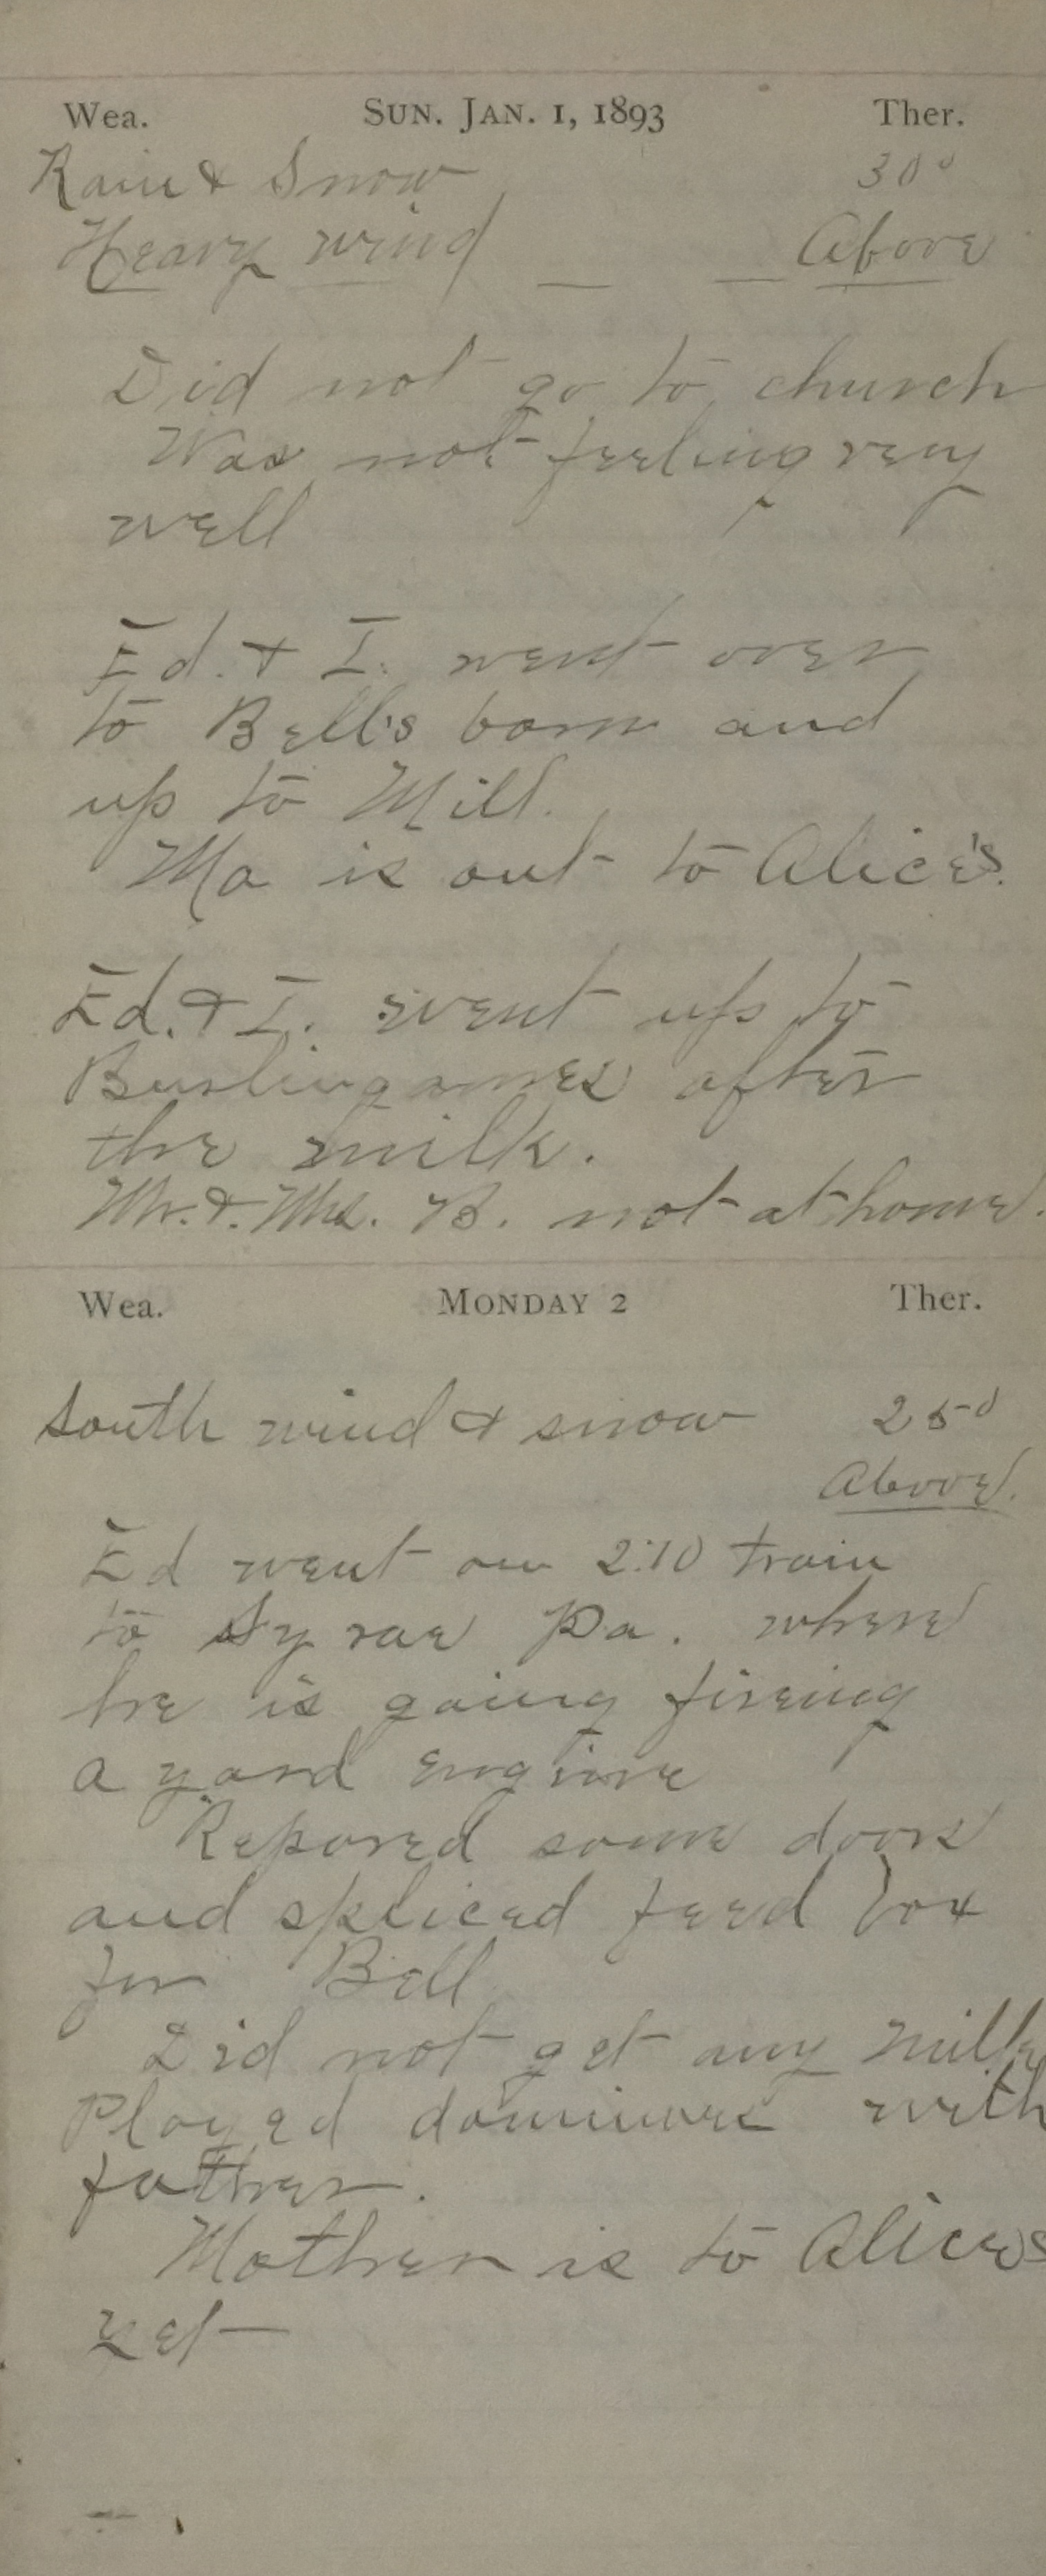 Wea. SUN. JAN. 1, 1893 Ther.
Rain & Snow 30°
Heavy wind Above
Did not go to church
Was not feeling very
well
Ed. & I. went over
to Bell's barn and
up to Mill.
Ma is out to Alice's.
Ed. & I. went up to
Burlingames after
the milk.
Mr. & Mrs. B. not at home.
Wea. MONDAY 2 Ther.
South wind & snow 25°
Above.
Ed went on 2:10 train
to Pa. where
he is going fireing
a yard engine
Repared some doors
and spliced feed box
for Bell
Did not get any milk
Played dominoes with
father.
Mother is to Alices
yet